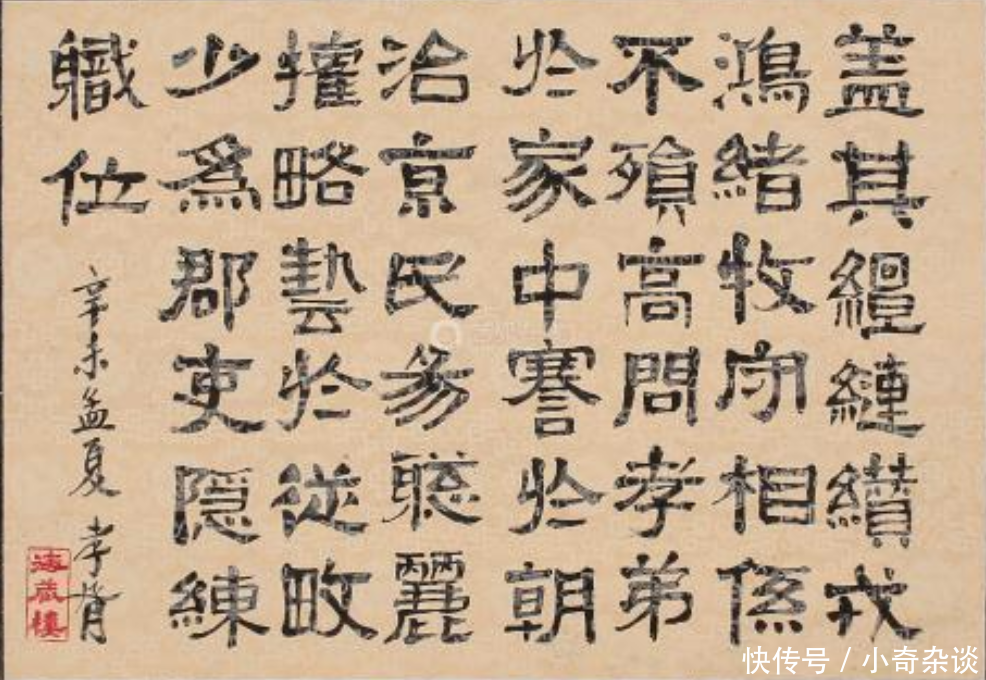 盖其繵縺纘戎
鴻緒牧守相係
不殞高問孝弟
於家中謇於朝
治京民易聰麗
權略藝於從畋
少爲郡吏隱練
職位
辛未孟夏 孝胥
海藏樓
快传号 / 小奇杂谈